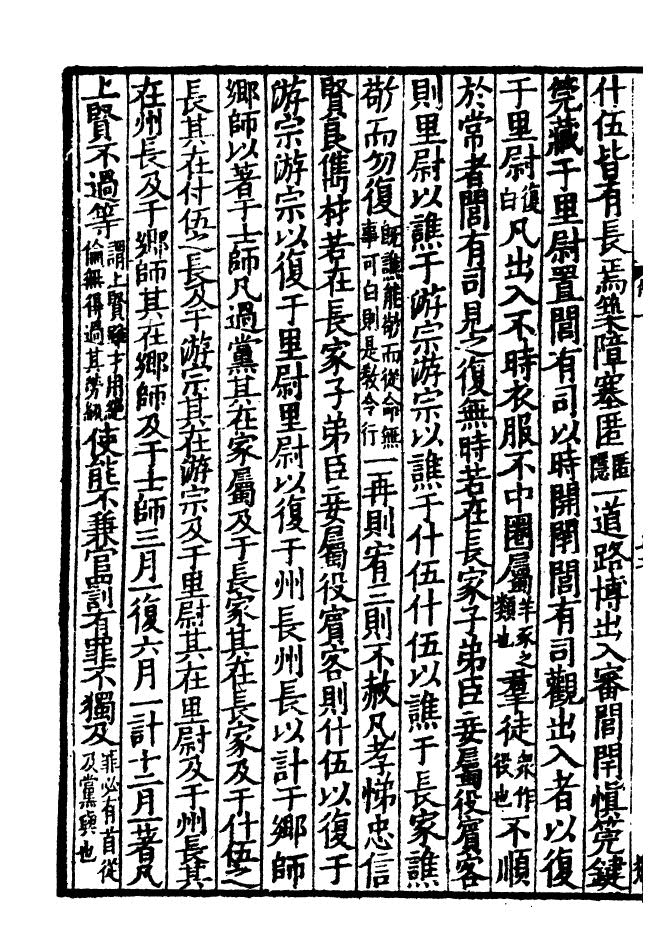 什伍皆有長焉築障塞匿匿隱一道路博出入審閭閈慎筦鍵
筦藏于里尉置閭有司以時開閉閭有司觀出入者以復
于里尉復白凡出入不時衣服不中圈屬羊豕之類也羣徒衆作役也不順
於常者閭有司見之復無時若在長家子弟臣妾屬役賓客
則里尉以譙于游宗游宗以譙于什伍什伍以譙于長家譙
敬而勿復既譙能敬而從命無事可白則是教令行一再則宥三則不赦凡孝悌忠信
賢良儁材若在長家子弟臣妾屬役賓客則什伍以復于
游宗游宗以復于里尉里尉以復于州長州長以計于鄉師
鄉師以著于士師凡過黨其在家屬及于長家其在長家及于什伍之
長其在什伍之長及于游宗其在游宗及于里尉其在里尉及于州長其
在州長及于鄉師其在鄉師及于士師三月一復六月一計十二月一著凡
上賢不過等謂上賢雖才用絕倫無得過其勞級使能不兼官罰有罪不獨及罪必有首從及黨與也